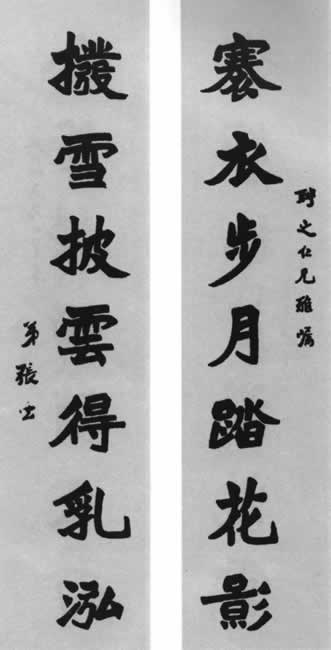 聘之仁兄雅屬
褰衣步月踏花影
撥雪披雲得乳泓
弟張